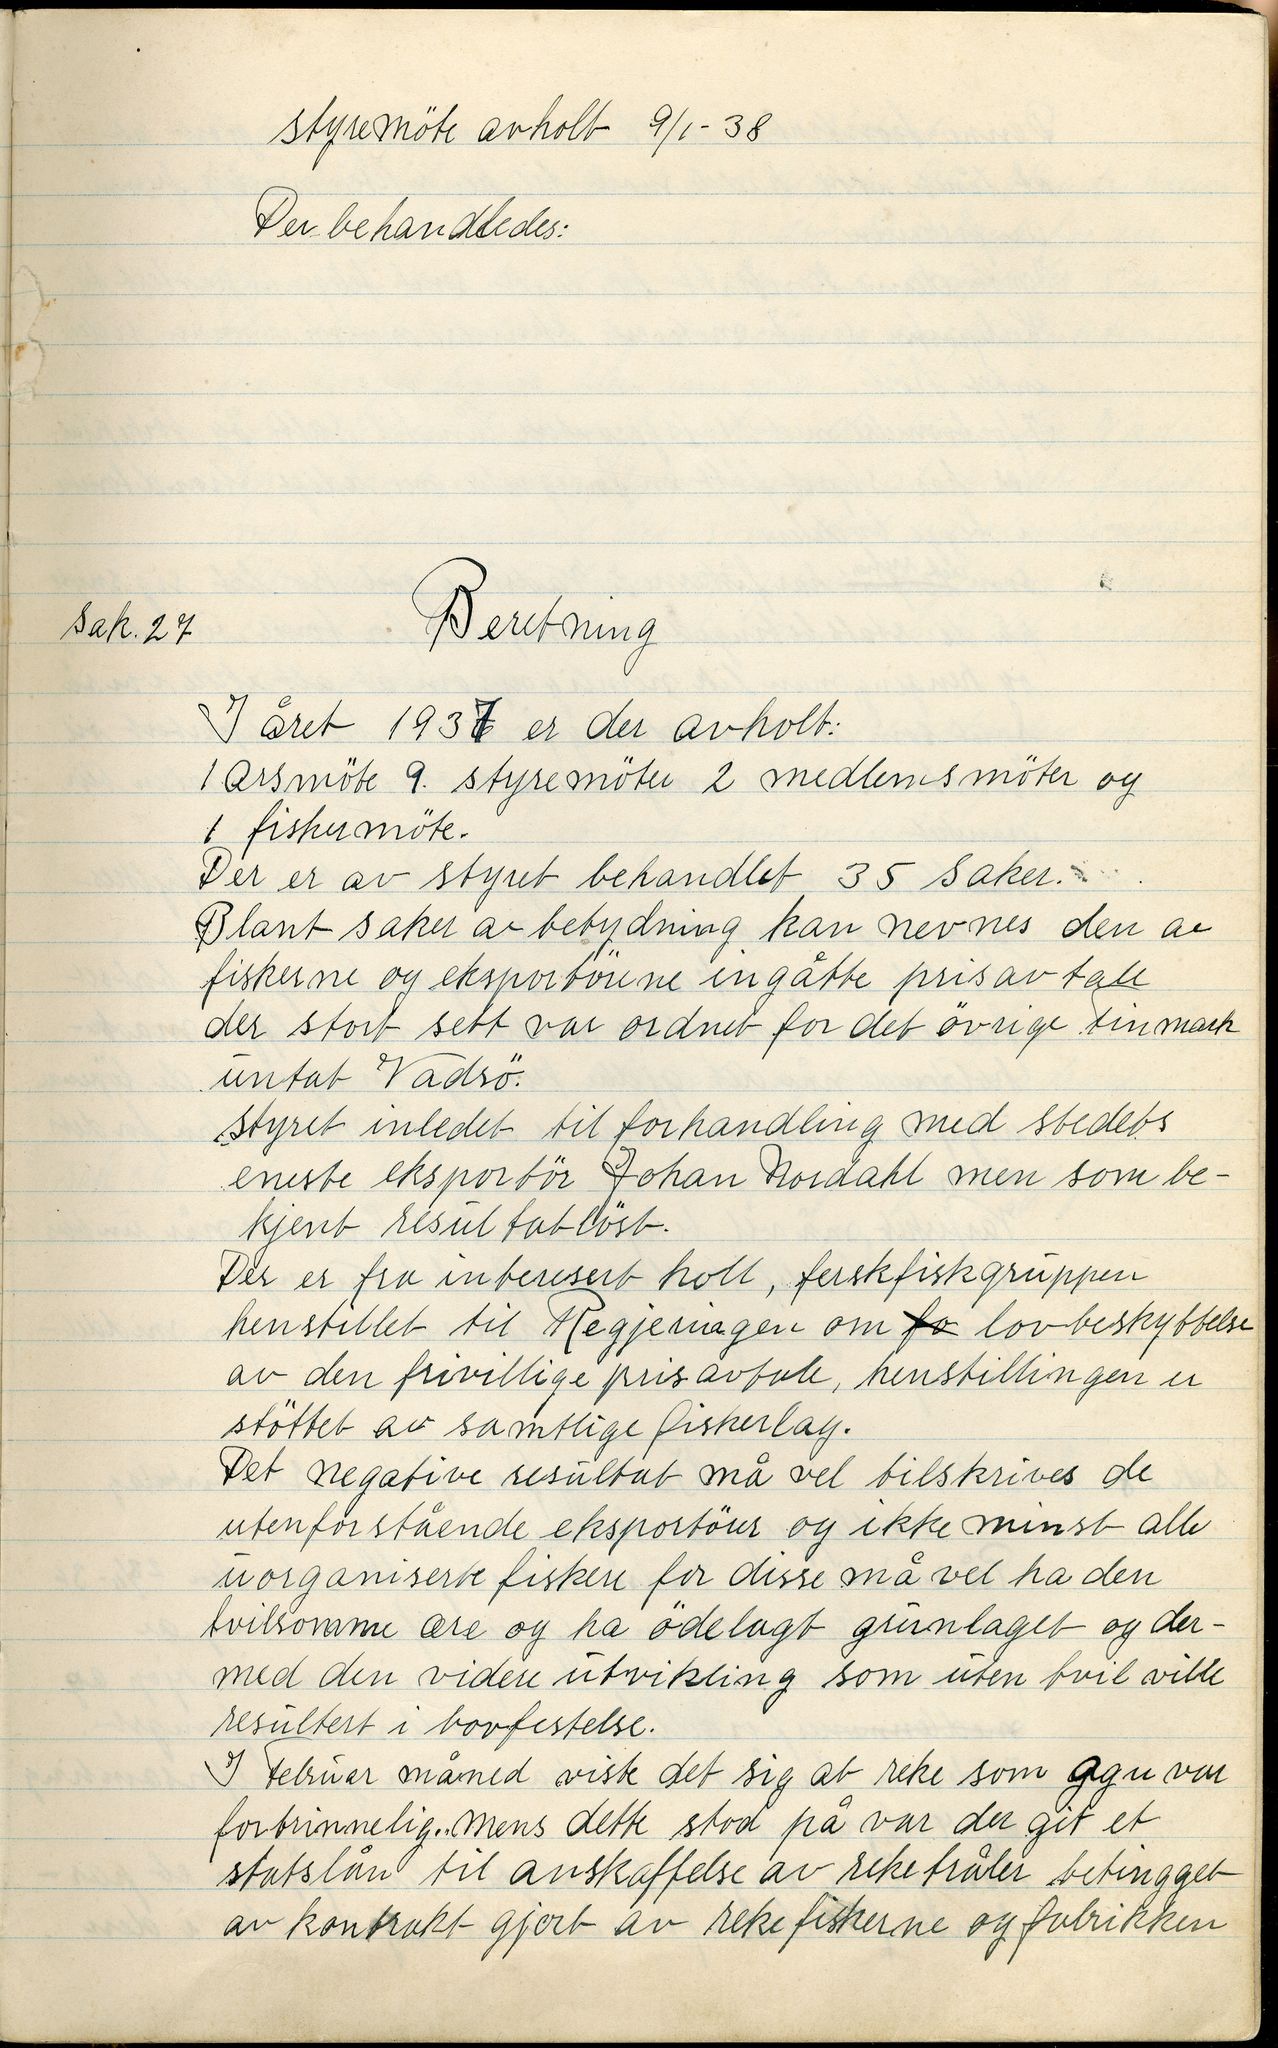 styremöte avholt 9/1-38
Der behandledes:
Sak. 27
Beretning
I året 1937 er der avholt:
1 årsmöte 9. styremöter 2 medlemsmöter og
1 fiskermöte.
Der er av styret behandlet 35 saker.
Blant saker av betydning kan nevnes den av
fiskerne og eksportörene ingåtte prisavtale
der stort sett var ordnet for det övrige Finmark
untat Vadsö.
styret inledet til forhandling med stedets
eneste eksportör Johan Nordahl men som be-
kjent resultatlöst.
Der er fra interesert holl, ferskfiskgruppen
henstillet til Regjeringen om fo lovbeskyttelse
av den frivillige prisavtale, henstillingen er
stöttet av samtlige fiskerlag.
Det negative resultat må vel tilskrives de
utenforstående eksportörer og ikke minst alle
uorganiserte fiskere for disse må vel ha den
tvilsomme ære og ha ödelagt grunlaget og der-
med den videre utvikling som uten tvil ville
resultert i lovfestelse.
I Februar måned viste det sig at reke som agn var
fortrinnelig. mens dette stod på var der git et
statslån til anskaffelse av reketråler betingget
av kontrakt gjort av rekefiskerne og fabrikken